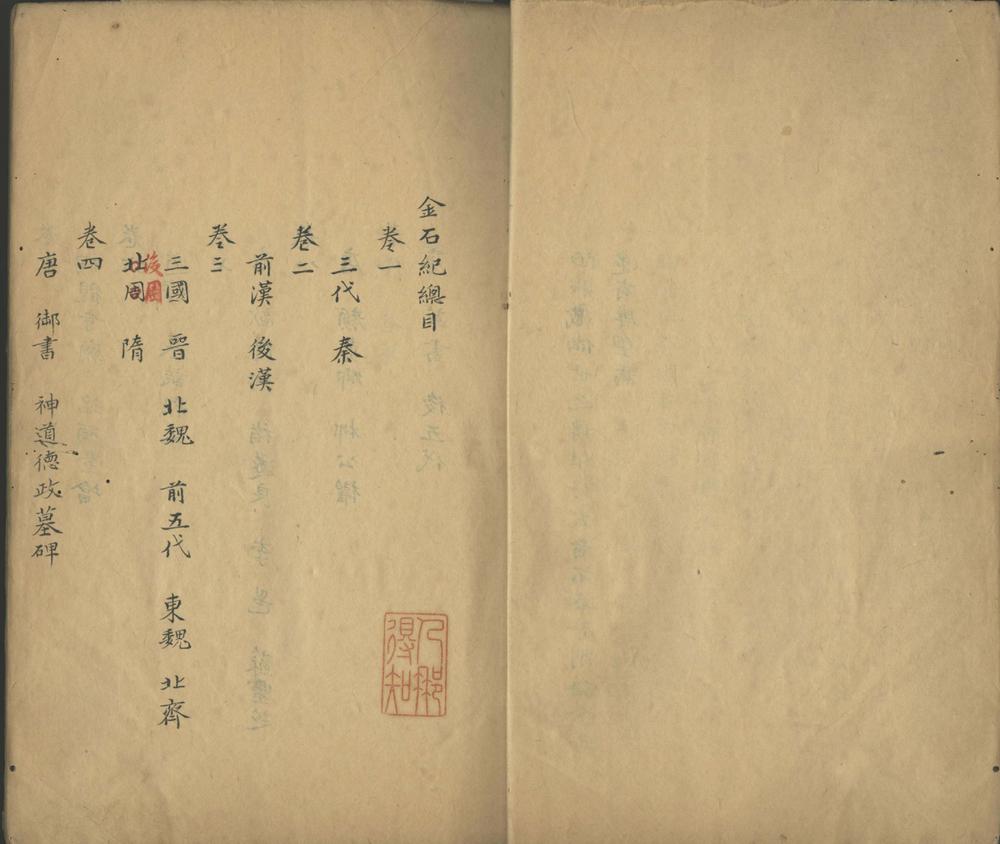 金石紀總目
卷一
三代 秦
卷二
前漢 後漢
卷三
三國 晉 北魏 前五代 東魏 北齊
後周
北周 隋
卷四
唐 御書 神道德政墓碑